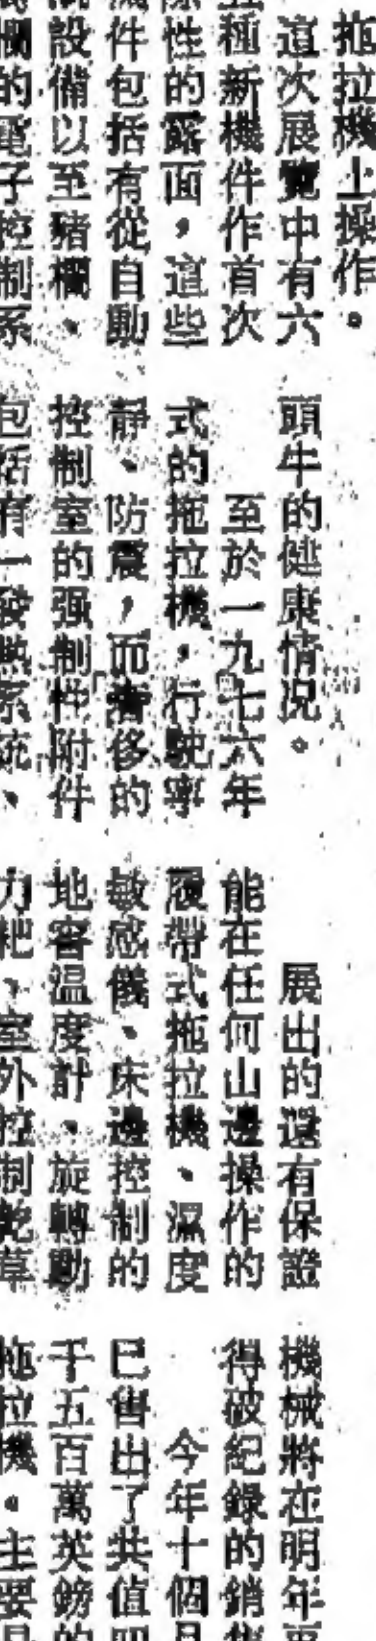 拖拉機上操作。
這次展覽中有六
種新機件作首次
性的露面，這些
件包括有從自動
設備以至豬欄、
欄的電子控制系
頭牛的健康情况。
至於一九七六年
式的拖拉機，行駛寧
靜、防震，而奢侈的
控制室的强制性附件
包括有一發熱系統、
展出的還有保證
能在任何山邊操作的
履帶式拖拉機、濕度
敏感儀、床邊控制的
地窖温度計、旋轉動
力耙、室外控制乾草
機械將在明年
得破紀錄的銷售
今年十個月
已售出了共值四
千五百萬英鎊的
拖拉機。主要是